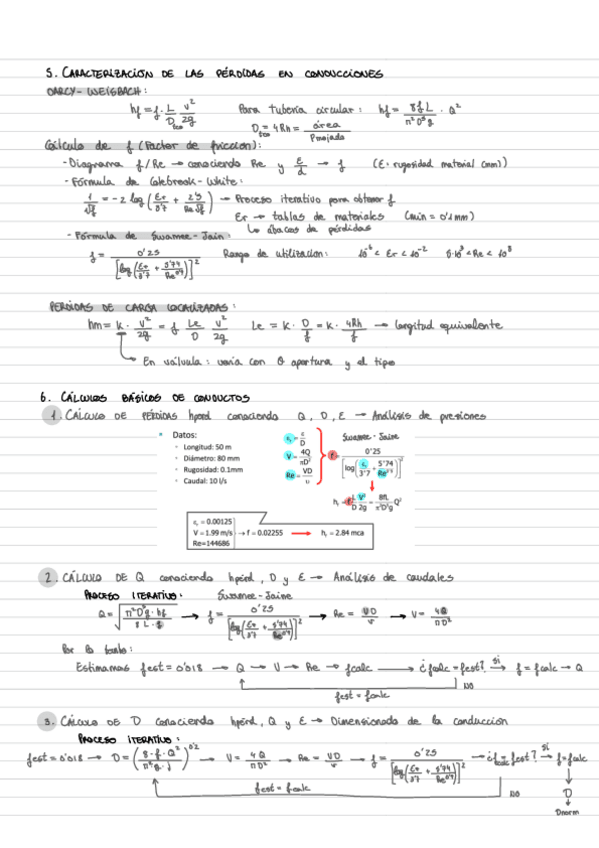 5. CARACTERIZACION DE LAS PÉRDIDAS EN CONDUCCIONES
DARCY-WEISBACH:
hf = f · L/D · v²/2g   Para tubería circular: hf = 8fL/π²D⁵g · Q²
D = 4Rh = área/Pmojado
Cálculo de f (Factor de fricción):
- Diagrama f/Re → conociendo Re y ε/d → f (ε: rugosidad material (mm))
- Fórmula de Colebrook-White:
1/√f = -2 log (Er/3'7 + 2'51/Re√f) → Proceso iterativo para obtener f
Er → tablas de materiales (min = 0'1mm)
↳ ábacos de pérdidas
- Fórmula de Swamee-Jain:
f = 0'25/[log(Er/3'7 + 5'74/Re^0'9)]²   Rango de utilización: 10⁻⁶ < Er < 10⁻² 5·10³ < Re < 10⁸
PERDIDAS DE CARGA LOCALIZADAS:
hm = K · v²/2g = f Le/D v²/2g   Le = K · D/f = K · 4Rh/f → longitud equivalente
En válvula: varía con θ apertura y el tipo
6. CÁLCULOS BÁSICOS DE CONDUCTOS
1. CÁLCULO DE PÉRDIDAS hperd conociendo Q, D, E → Análisis de presiones
Datos:
• Longitud: 50 m
• Diámetro: 80 mm
• Rugosidad: 0.1mm
• Caudal: 10 l/s
εr = ε/D
V = 4Q/πD²
Re = VD/υ
Swamee-Jaine
f = 0'25/[log(εr/3'7 + 5'74/Re^0'9)]²
hf = f L/D V²/2g = 8fL/π²D⁵g Q²
εr = 0.00125
V = 1.99 m/s → f = 0.02255 → hf = 2.84 mca
Re=144686
2. CÁLCULO DE Q conociendo hperd, D y E → Análisis de caudales
PROCESO ITERATIVO: Swamee-Jaine
Q = √(π²D⁵g·hf/8·L·f) → f = 0'25/[log(Er/3'7 + 5'74/Re^0'9)]² → Re = VD/υ → V = 4Q/πD²
Por lo tanto:
Estimamos fest = 0'018 → Q → V → Re → fcalc → ¿fcalc = fest? Si → f = fcalc → Q
NO
fest = fcalc
3. CÁLCULO DE D conociendo hperd, Q y E → Dimensionado de la conducción
PROCESO ITERATIVO:
fest = 0'018 → D = (8·f·Q²/π²g·j)^0'2 → V = 4Q/πD² → Re = VD/υ → f = 0'25/[log(Er/3'7 + 5'74/Re^0'9)]² → ¿fcalc = fest? Si → f = fcalc
fest = fcalc
NO
D
Dnorm